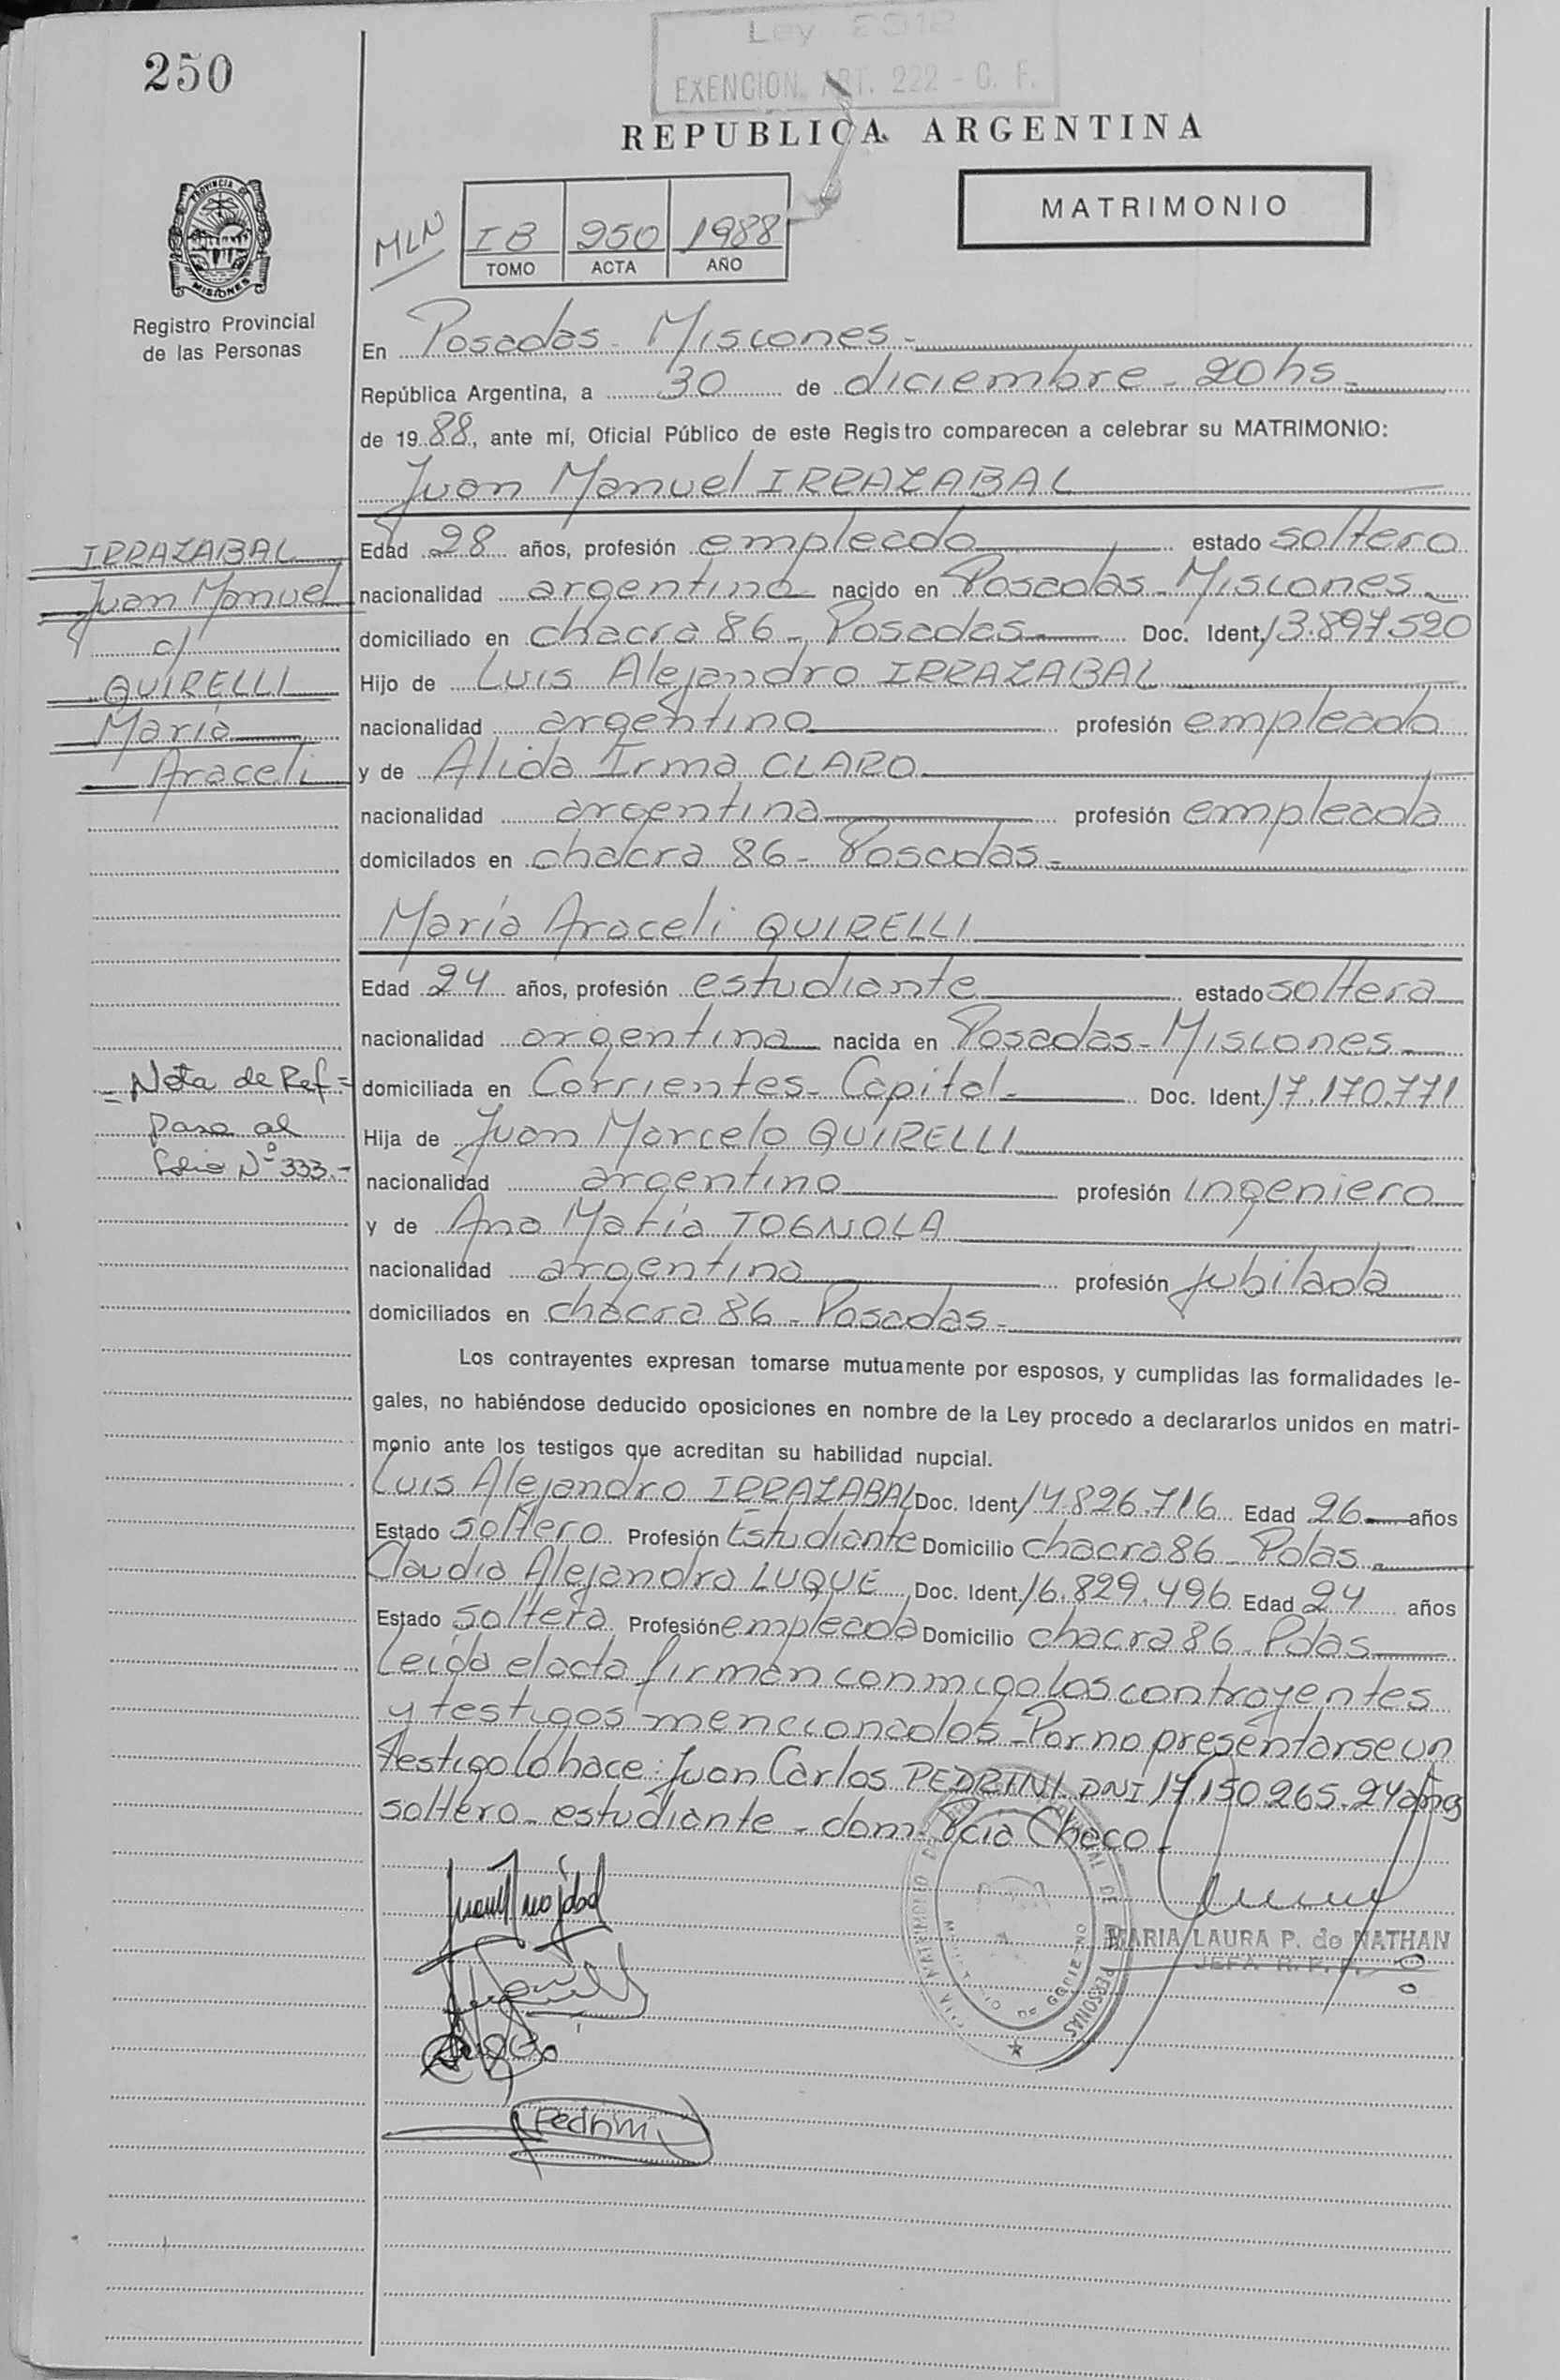 250
Ley 2312
EXENCION ART. 222 - C. F.
REPUBLICA ARGENTINA
MATRIMONIO
MLN
IB 250 1988
TOMO ACTA AÑO
PROVINCIA DE
MISIONES
Registro Provincial
de las Personas
En Posadas - Misiones -
República Argentina, a 30 de diciembre - 20hs -
de 1988, ante mí, Oficial Público de este Registro comparecen a celebrar su MATRIMONIO:
Juan Manuel IRRAZABAL
IRRAZABAL
Juan Manuel
c/
QUIRELLI
María
Araceli
Edad 28 años, profesión empleado estado soltero
nacionalidad argentina nacido en Posadas - Misiones -
domiciliado en chacra 86 - Posadas - Doc. Ident. 13.897.520
Hijo de Luis Alejandro IRRAZABAL
nacionalidad argentino profesión empleado
y de Alida Irma CLARO
nacionalidad argentina profesión empleada
domicilados en chacra 86 - Posadas -
María Araceli QUIRELLI
Edad 24 años, profesión estudiante estado soltera
nacionalidad argentina nacida en Posadas - Misiones -
domiciliada en Corrientes - Capital - Doc. Ident. 17.170.771
Hija de Juan Marcelo QUIRELLI
nacionalidad argentino profesión ingeniero
y de Ana María TOGNOLA
nacionalidad argentina profesión jubilada
domiciliados en chacra 86 - Posadas -
- Nota de Ref =
Pasa al
folio Nº 333.-
Los contrayentes expresan tomarse mutuamente por esposos, y cumplidas las formalidades le-
gales, no habiéndose deducido oposiciones en nombre de la Ley procedo a declararlos unidos en matri-
monio ante los testigos que acreditan su habilidad nupcial.
Luis Alejandro IRRAZABAL Doc. Ident. 14.826.716 Edad 26 años
Estado soltero Profesión Estudiante Domicilio chacra 86 - Pdas -
Claudia Alejandra LUQUE Doc. Ident. 16.829.496 Edad 24 años
Estado soltera Profesión empleada Domicilio chacra 86 - Pdas
Leída el acta firman conmigo los contrayentes
y testigos mencionados - Por no presentarse un
testigo lo hace: Juan Carlos PEDRINI DNI 17.150.265 - 24 años
soltero - estudiante - dom. Pcia Chaco -
Pedrini
MARIA LAURA P. de NATHAN
JEFA R. P. P.